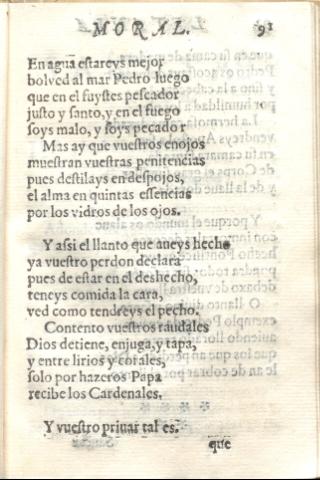 MORAL. 91
En agua estareys mejor
bolved al mar Pedro luego
que en el fuystes pescador
justo y santo, y en el fuego
soys malo, y soys pecador
Mas ay que vuestros enojos
muestran vuestras penitencias
pues destilays en despojos,
el alma en quintas essencias
por los vidros de los ojos.
Y assi el llanto que aueys hecho
ya vuestro perdon declara
pues de estar en el deshecho,
teneys comida la cara,
ved como tendreys el pecho.
Contento vuestros raudales
Dios detiene, enjuga, y tapa,
y entre lirios y corales,
solo por hazeros Papa
recibe los Cardenales.
Y vuestro priuar tal es.
que